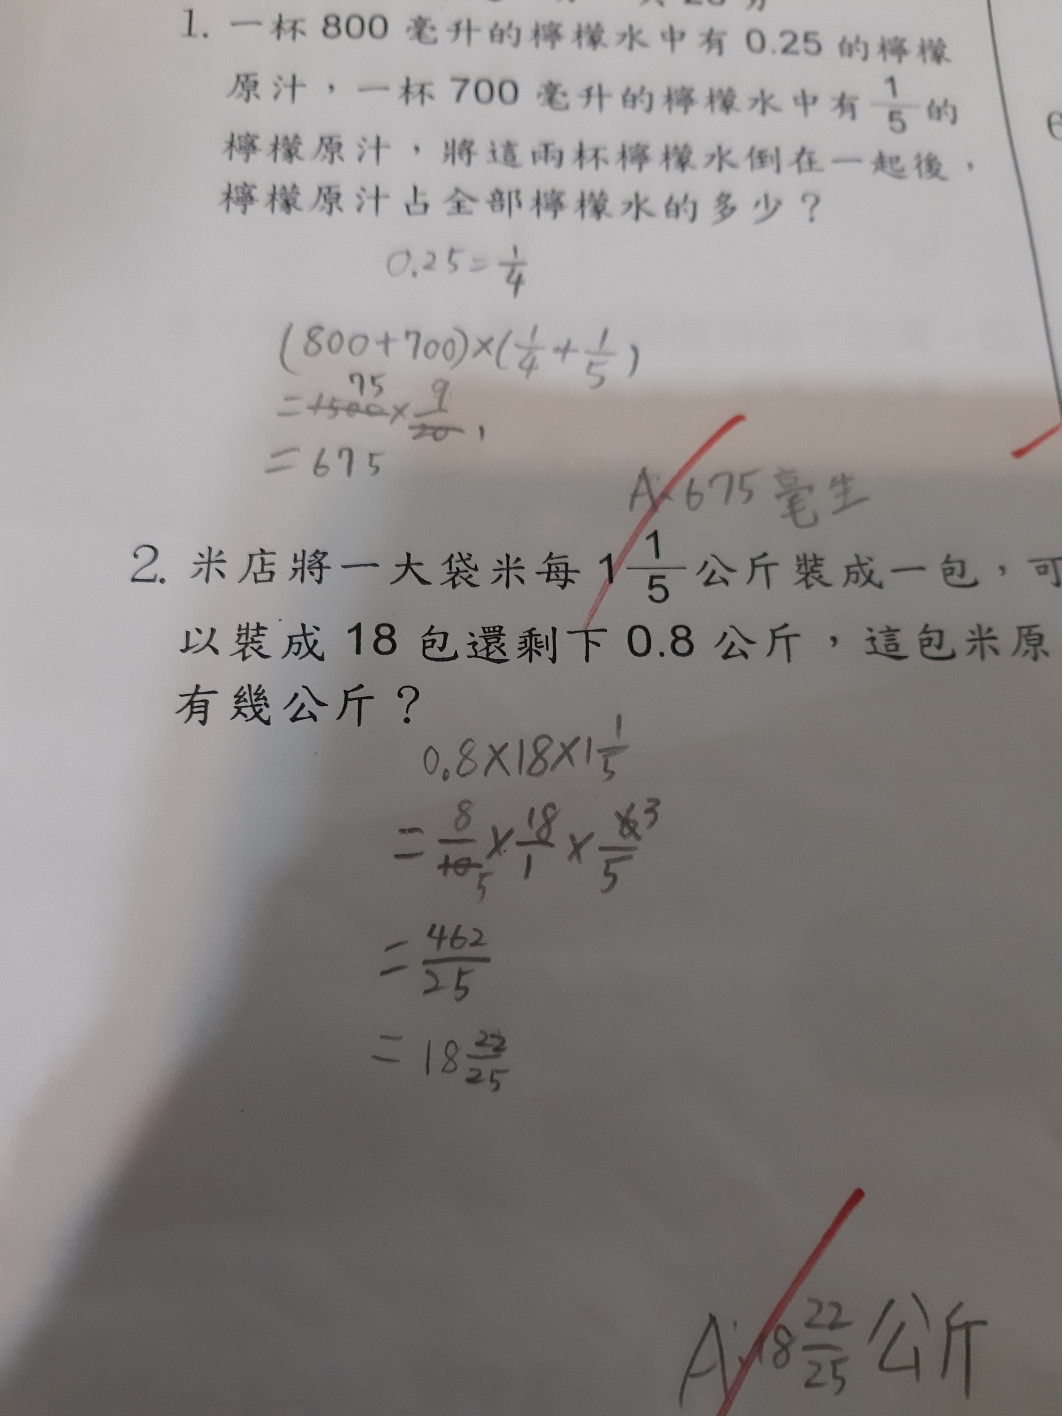 1. 一杯 800 毫升的檸檬水中有 0.25 的檸檬
原汁，一杯 700 毫升的檸檬水中有 1/5 的
檸檬原汁，將這兩杯檸檬水倒在一起後，
檸檬原汁占全部檸檬水的多少？
0.25=1/4
(800+700)×(1/4+1/5)
75
=1500×9/20 1
=675
A:675毫生
2. 米店將一大袋米每 1 1/5 公斤裝成一包，可
以裝成 18 包還剩下 0.8 公斤，這包米原
有幾公斤？
0.8×18×1 1/5
=8/10 5×18/1×6 3/5
=462/25
=18 22/25
A:18 22/25 公斤